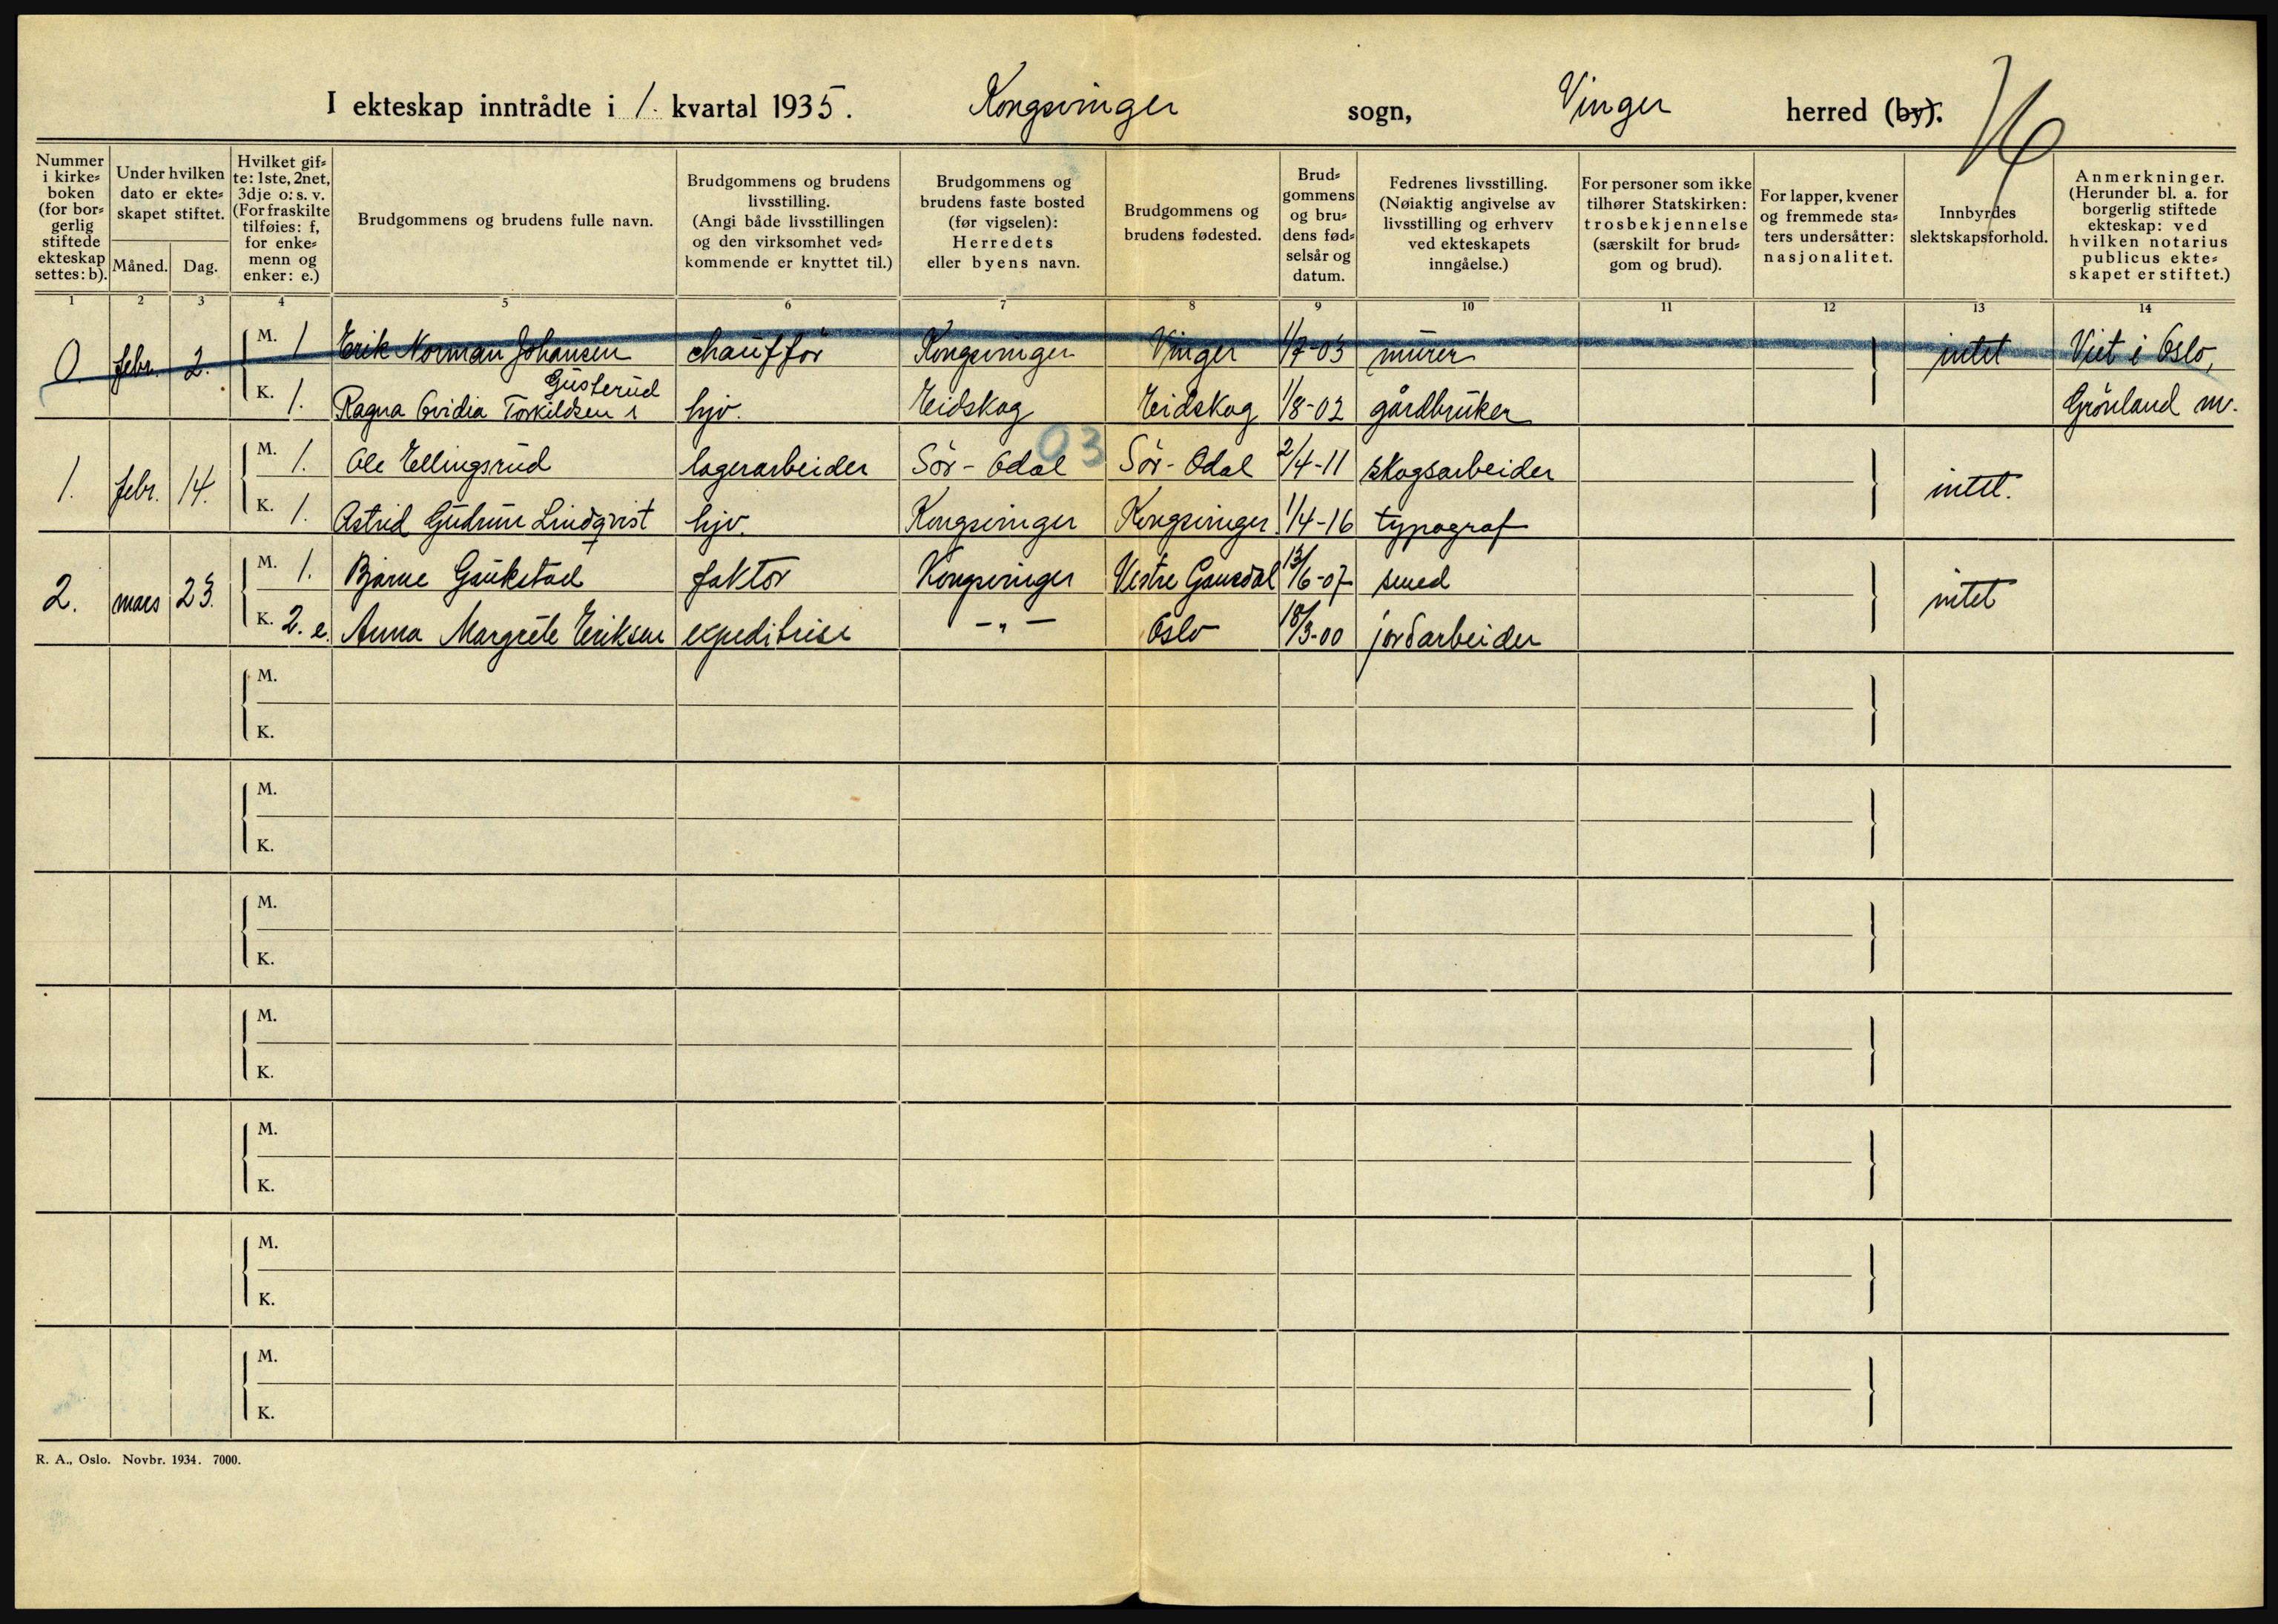 I ekteskap inntrådte i 1. kvartal 1935. Kongsvinger sogn, Vinger herred (by).
Nummer i kirke= boken (for bor= gerlig stiftede ekteskap settes: b).
Under hvilken dato er ekte= skapet stiftet.
Måned. Dag.
Hvilket gif= te: 1ste, 2net, 3dje o: s. v. (For fraskilte tilføies: f, for enke= menn og enker: e.)
Brudgommens og brudens fulle navn.
Brudgommens og brudens livsstilling. (Angi både livsstillingen og den virksomhet ved= kommende er knyttet til.)
Brudgommens og brudens faste bosted (før vigselen): Herredets eller byens navn.
Brudgommens og brudens fødested.
Brud= gommens og bru= dens fød= selsår og datum.
Fedrenes livsstilling. (Nøiaktig angivelse av livsstilling og erhverv ved ekteskapets inngåelse.)
For personer som ikke tilhører Statskirken: trosbekjennelse (særskilt for brud= gom og brud).
For lapper, kvener og fremmede sta= ters undersåtter: nasjonalitet.
Innbyrdes slektskapsforhold.
Anmerkninger. (Herunder bl. a. for borgerlig stiftede ekteskap: ved hvilken notarius publicus ekte= skapet er stiftet.)
1 2 3 4 5 6 7 8 9 10 11 12 13 14
0. febr. 2. M. 1 Erik Norman Johansen chauffør Kongsvinger Vinger 1/7-03 murer intet Viet i Oslo,
Gusterud
K. 1. Ragna Ovidia Torkildsen hjv. Eidskog Eidskog 1/8-02 gårdbruker Grönland m.
03
1. febr. 14. M. 1. Ole Ellingsrud lagerarbeider Sör-Odal Sör-Odal 2/4-11 skogsarbeider intet.
K. 1. Astrid Gudrun Lindqvist hjv. Kongsvinger Kongsvinger 1/4-16 typograf
2. mars 23. M. 1. Bjarne Gaukstad faktor Kongsvinger Vestre Gausdal 13/6-07 smed intet
K. 2. e. Anna Margrete Eriksen expeditrise -"- Oslo 18/3-00 jordarbeider
M.
K.
M.
K.
M.
K.
M.
K.
M.
K.
M.
K.
M.
K.
R. A., Oslo. Novbr. 1934. 7000.